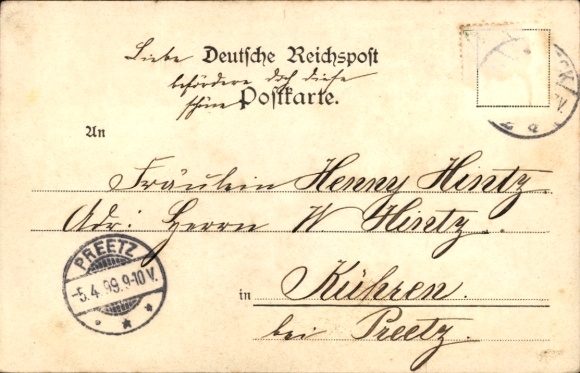 Liebe Deutsche Reichspost
befördere doch diese
schöne Postkarte.
An
Fräulein Henny Hintz
Adr: Herrn W. Hintz.
PREETZ
-5.4.99.9-10V.
in Kühren.
bei Preetz.